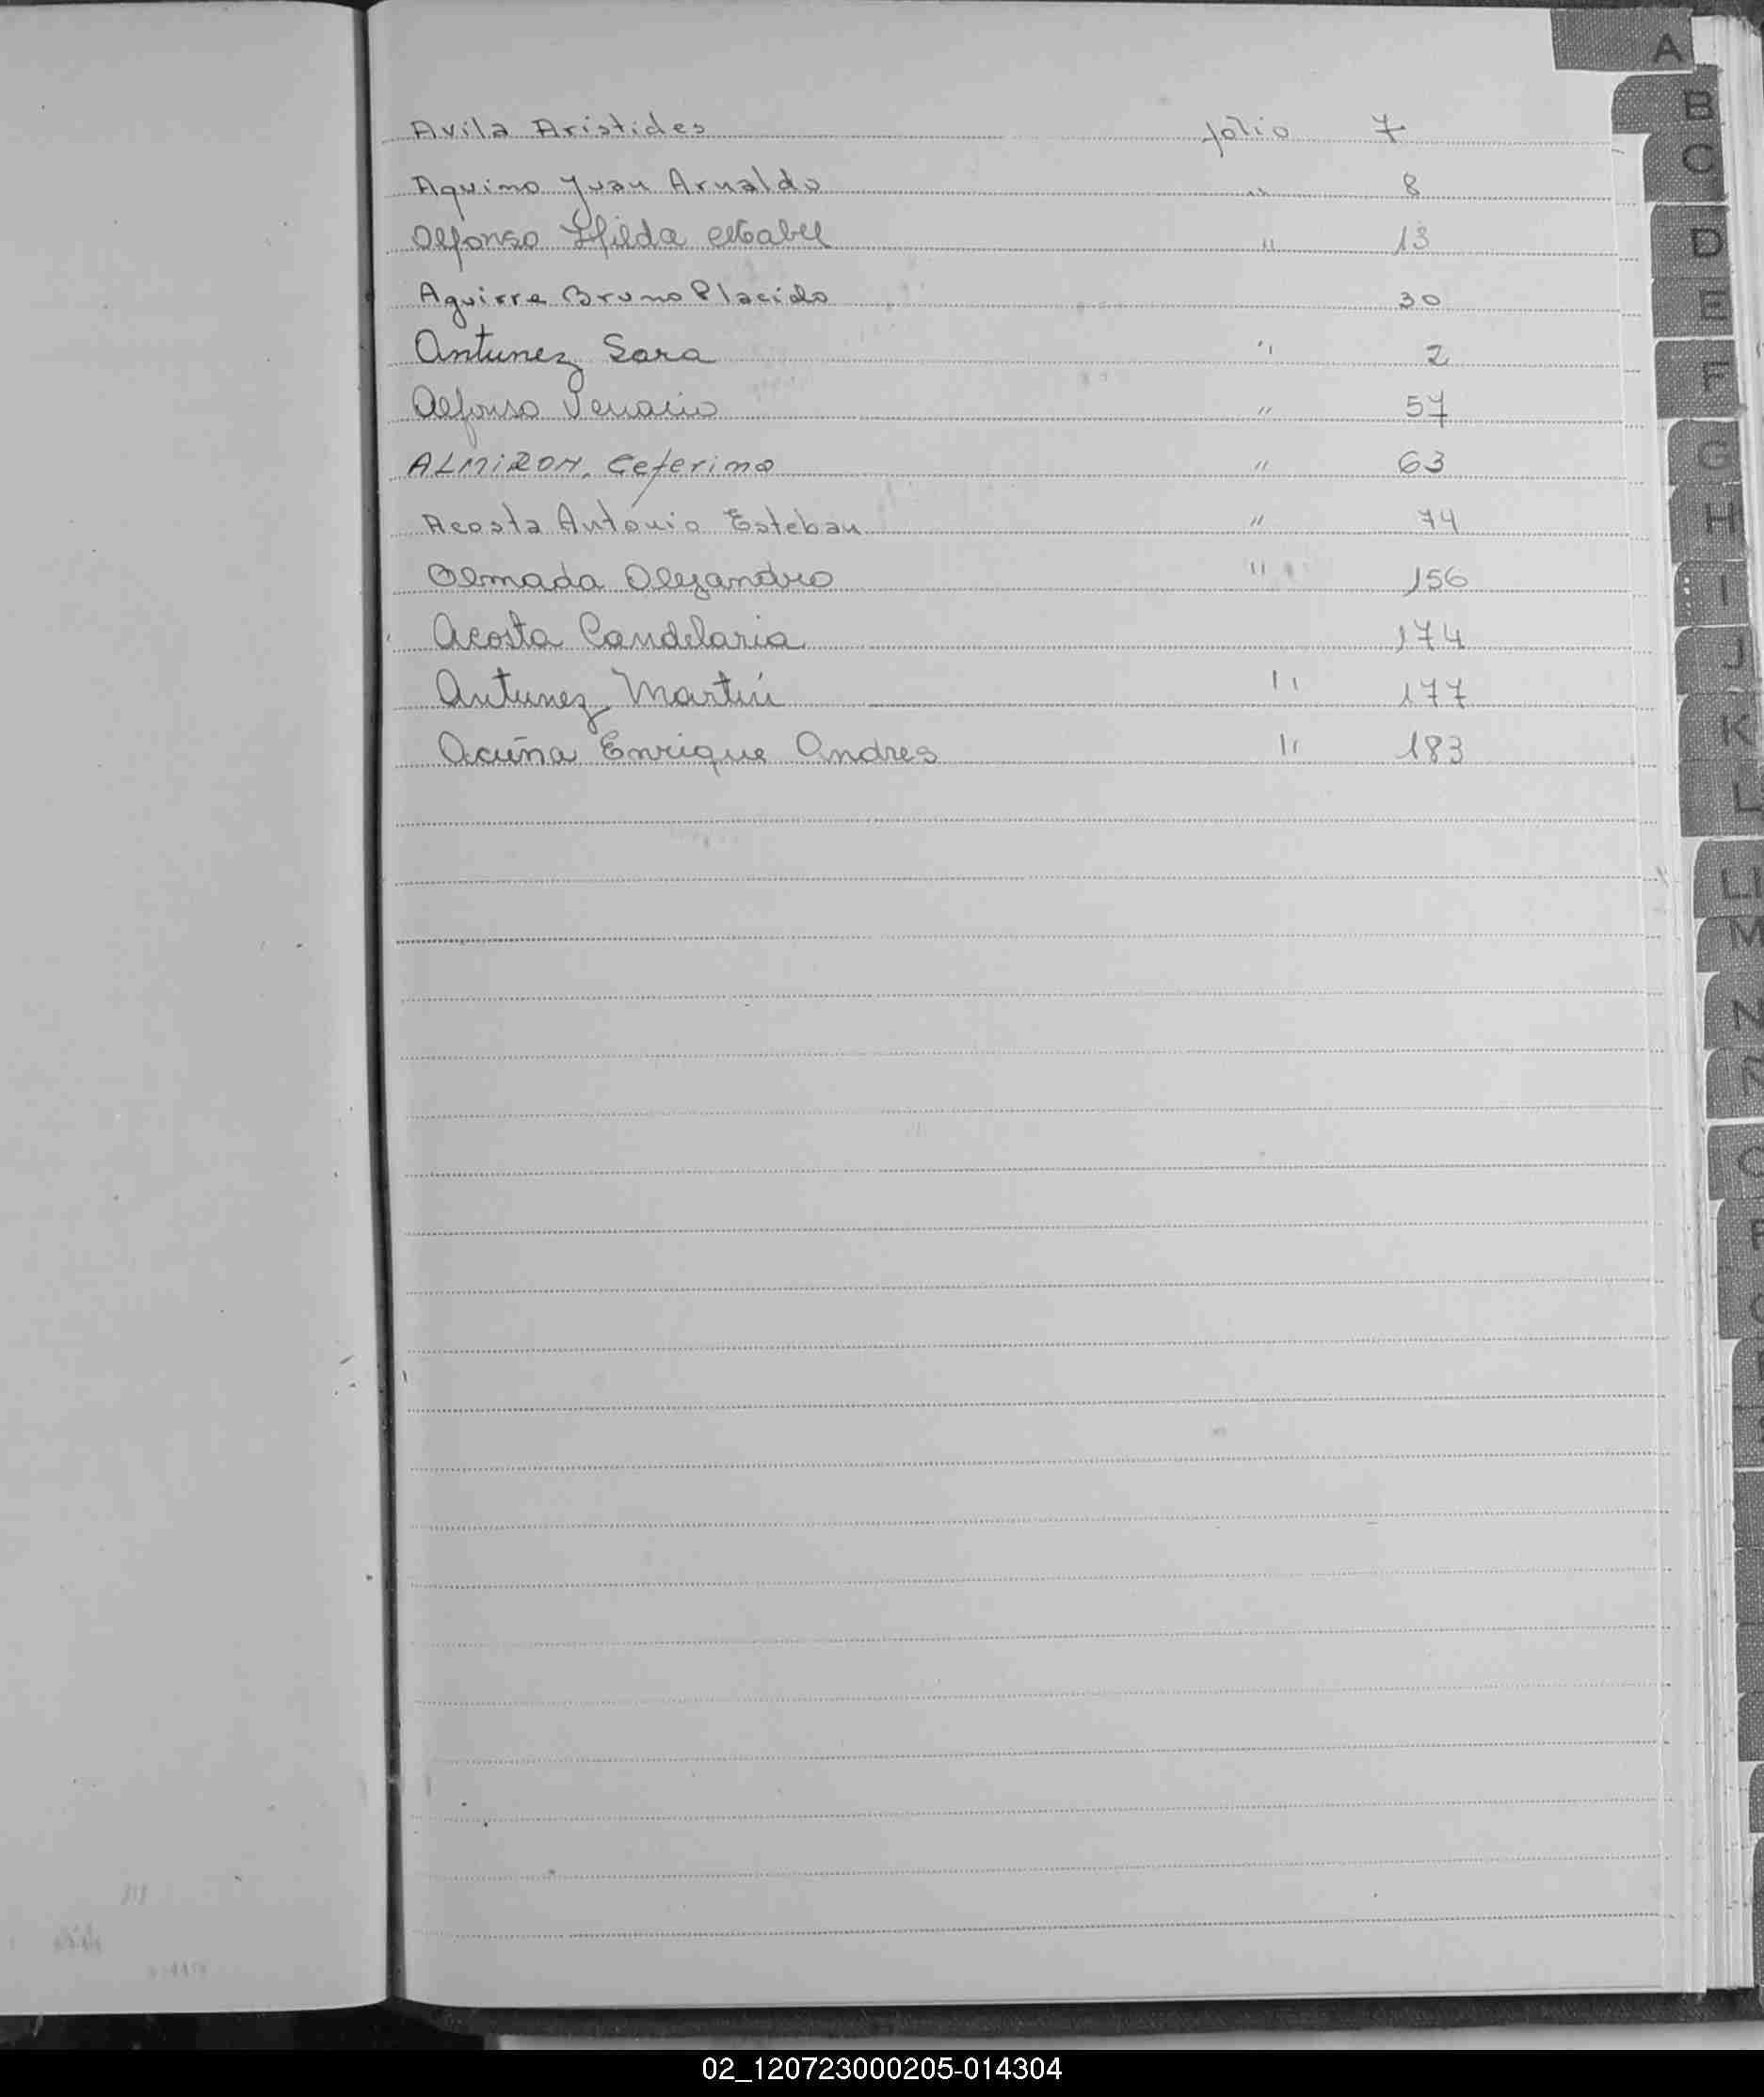 A
Avila Aristides folio 7
Aquino Juan Arnaldo " 8
Alfonso Hilda Mabel " 13
Aguirre Bruno Placido 30
Antunez Sara " 2
Alfonso Venacio " 57
ALMIRON, Ceferino " 63
Acosta Antonio Esteban " 74
Almada Alejandro " 156
Acosta Candelaria 174
Antunez Martín " 177
Acuña Enrique Andres " 183
B
C
D
E
F
G
H
I
J
K
L
LL
M
N
Ñ
02_120723000205-014304